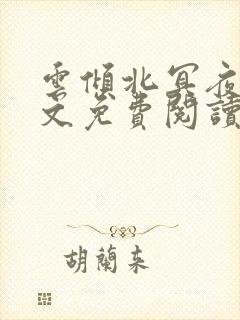 雲傾北冥夜
文免費閱讀
胡蘭來